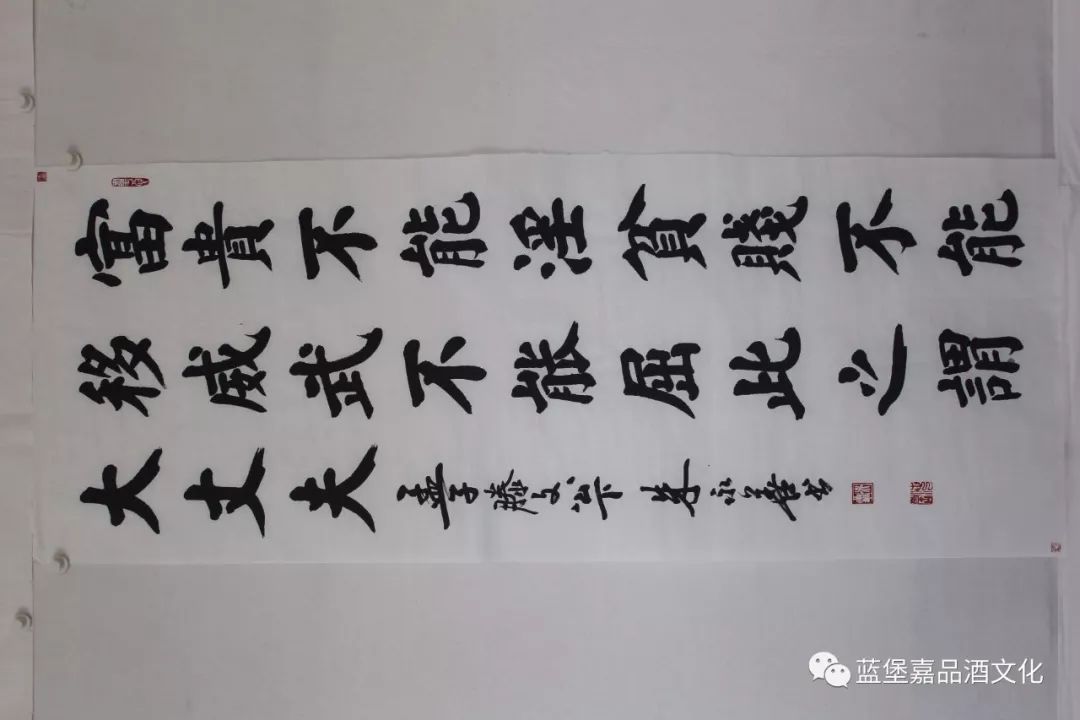 富貴不能淫貧賤不能
移威武不能屈此之謂
大丈夫 孟子滕文公下 朱永 书
蓝堡嘉品酒文化